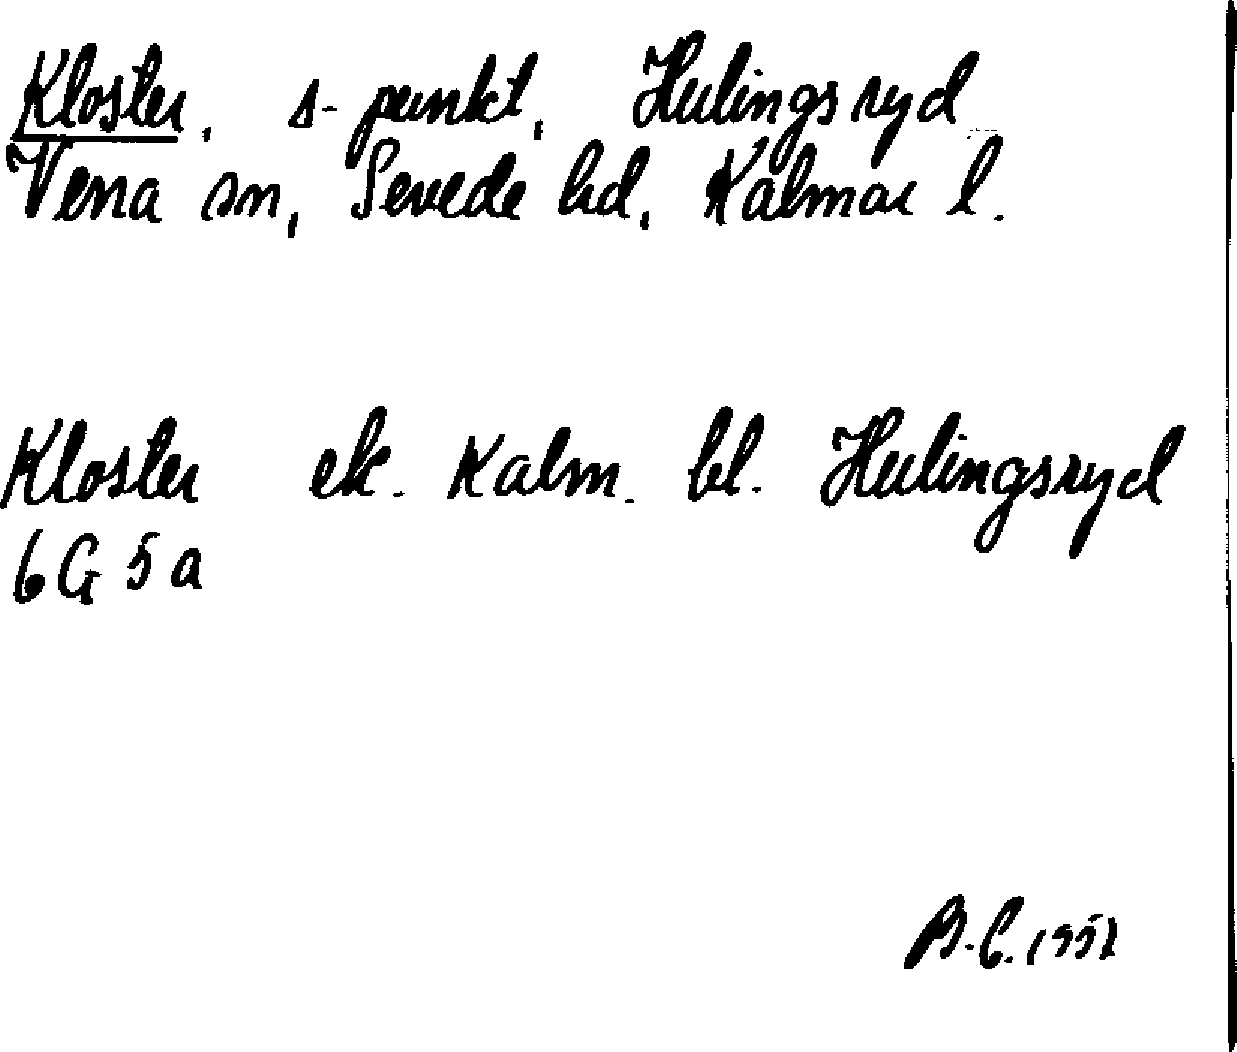 Kloster, s-punkt, Hulingsryd
Vena sn, Sevede hd, Kalmar l.
Kloster ek. Kalm. bl. Hulingsryd
6G 5a
B-C. 1951